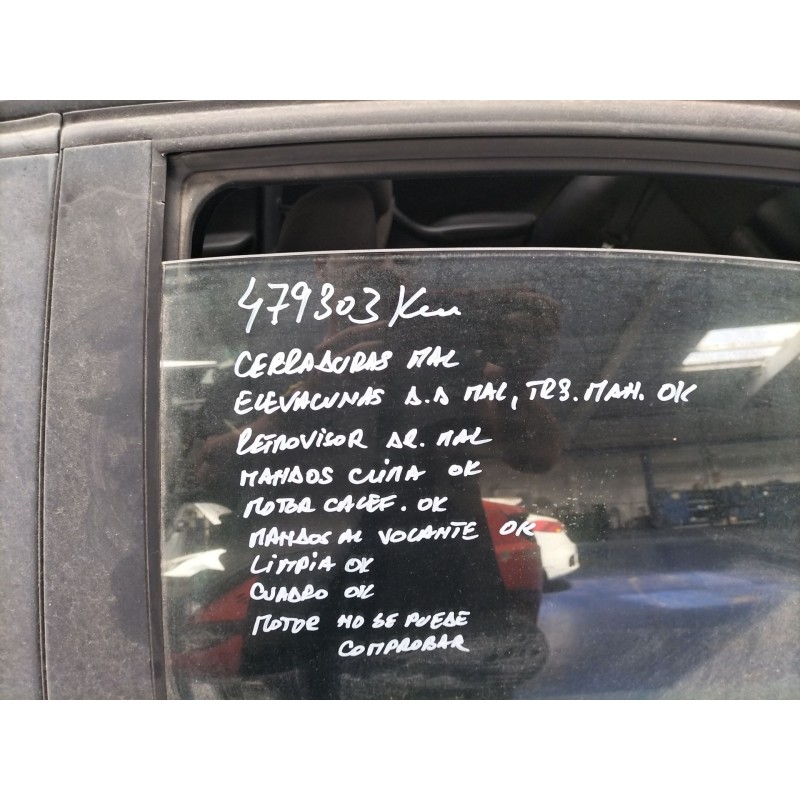 479303 Km
CERRADURAS MAL
ELEVALUNAS D.D MAL, TRS. MAN. OK
RETROVISOR DR. MAL
MANDOS CLIMA OK
MOTOR CALEF. OK
MANDOS AL VOLANTE OK
LIMPIA OK
CUADRO OK
MOTOR NO SE PUEDE
COMPROBAR